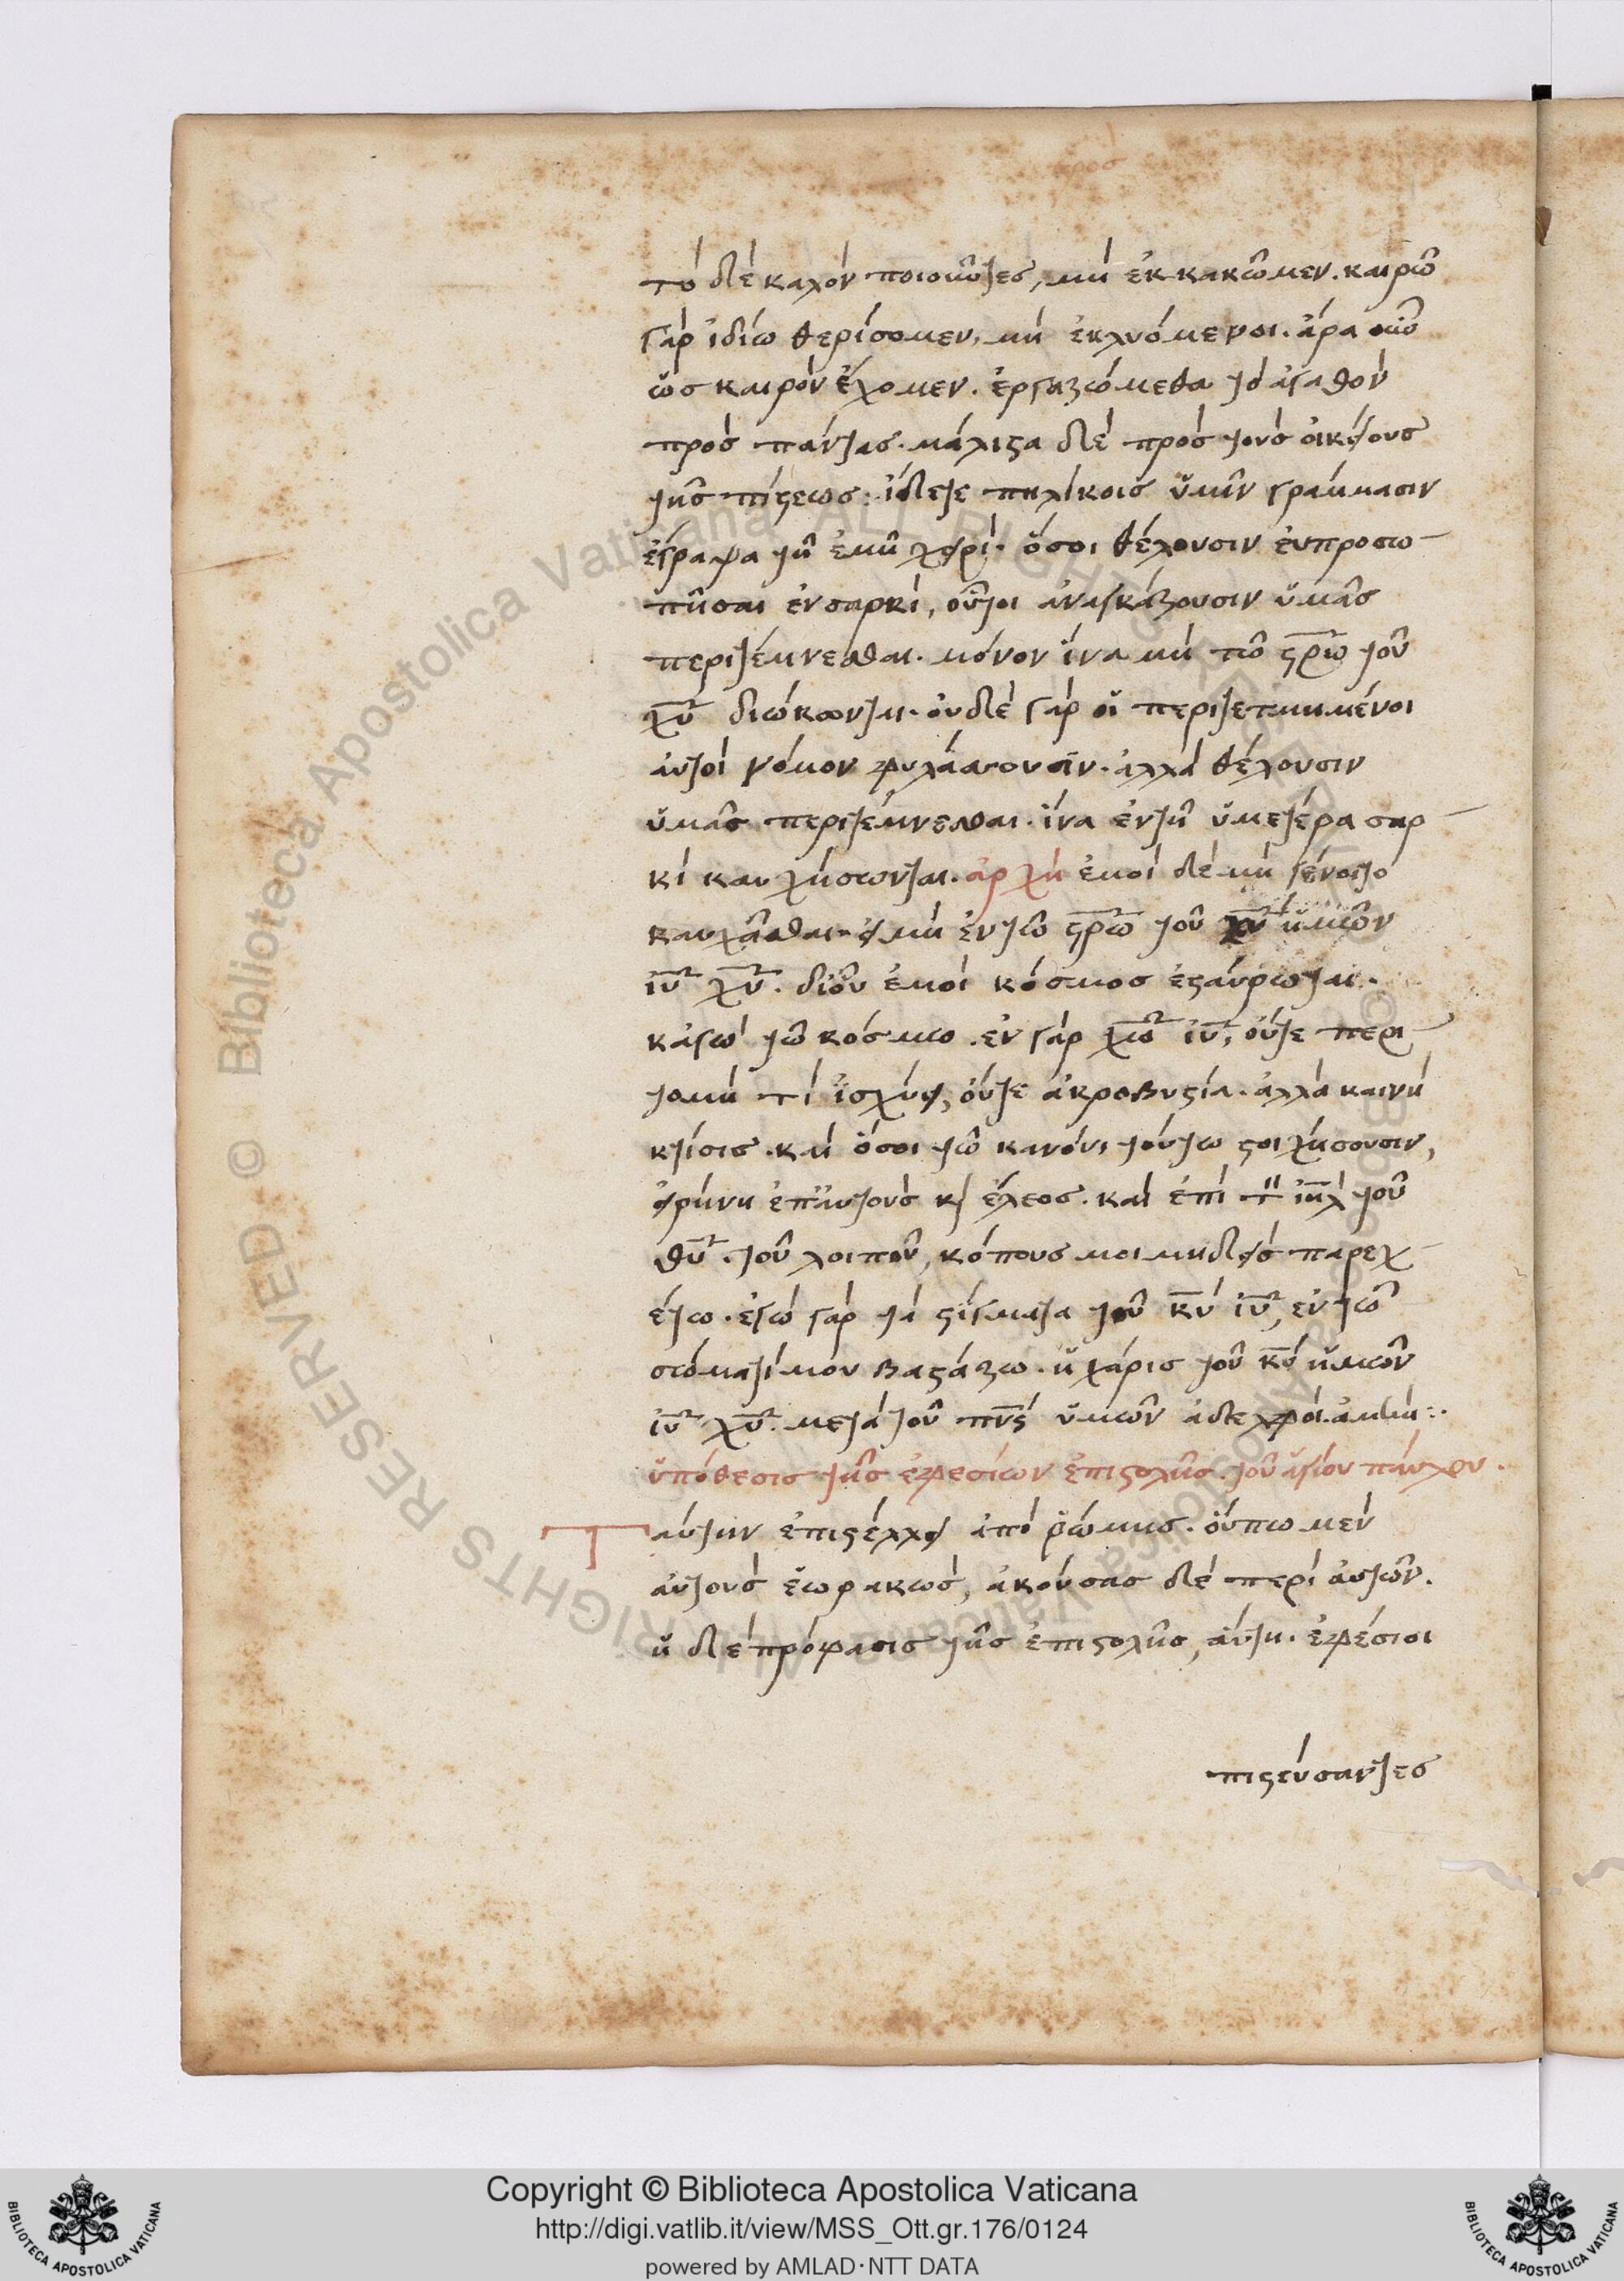 τὸ δὲ καλὸν ποιοῦντες, μὴ ἐκκακῶμεν. καιρῶ
γὰρ ἰδίω θερίσομεν, μὴ ἐκλυόμενοι. ἄρα οὖν
ὡς καιρὸν ἔχομεν. ἐργαζώμεθα τὸ ἀγαθὸν
πρὸς πάντας. μάλιστα δὲ πρὸς τοὺς οἰκείους
τῆς πίστεως: ἴδετε πηλίκοις ὑμῖν γράμμασιν
ἔγραψα τῆ ἐμῆ χειρί. ὅσοι θέλουσιν εὐπροσω
πῆσαι ἐν σαρκὶ, οὗτοι ἀναγκάζουσιν ὑμᾶς
περιτέμνεσθαι. μόνον ἵνα μὴ τῶ στρ̅ω̅ τοῦ
χ̅υ̅ διώκωνται. οὐδὲ γὰρ οἱ περιτετμημένοι
αὐτοὶ νόμον φυλάσσουσιν. ἀλλὰ θέλουσιν
ὑμᾶς περιτέμνεσθαι. ἵνα ἐν τῆ ὑμετέρα σαρ
κὶ καυχήσωνται. ἀρχὴ ἐμοὶ δὲ μὴ γένοιτο
καυχᾶσθαι. εἰ μὴ ἐν τῶ στρ̅ω̅ τοῦ κ̅υ̅ ἡμῶν
ι̅υ̅ χ̅υ̅. δι' οὗ ἐμοὶ κόσμος ἐσταύρωται.
κἀγὼ τῶ κόσμω. ἐν γὰρ χ̅ω̅ ι̅υ̅, οὔτε περι
τομή τι ἰσχύει, οὔτε ἀκροβυστία. ἀλλὰ καινὴ
κτίσις. καὶ ὅσοι τῶ κανόνι τούτω στοιχήσουσιν,
εἰρήνη ἐπ' αὐτοὺς κ̀ ἔλεος. καὶ ἐπὶ τὸν ι̅η̅λ̅ τοῦ
θ̅υ̅. τοῦ λοιποῦ, κόπους μοι μηδεὶς παρεχ
έτω. ἐγὼ γὰρ τὰ στίγματα τοῦ κ̅υ̅ ι̅υ̅, ἐν τῶ
σώματί μου βαστάζω. ἡ χάρις τοῦ κ̅υ̅ ἡμῶν
ι̅υ̅ χ̅υ̅. μετὰ τοῦ π̅ν̅ς̅ ὑμῶν ἀδελφοί. ἀμήν:.
ὑπόθεσις τῆς ἐφεσίων ἐπιστολῆς. τοῦ ἁγίου παύλου.
Ταύτην ἐπιστέλλει ἀπὸ ῥώμης. οὔπω μὲν
αὐτοὺς ἑωρακὼς, ἀκούσας δὲ περὶ αὐτῶν.
ἡ δὲ πρόφασις τῆς ἐπιστολῆς, αὕτη. ἐφέσιοι
πιστεύσαντες
Copyright © Biblioteca Apostolica Vaticana
http://digi.vatlib.it/view/MSS_Ott.gr.176/0124
powered by AMLAD·NTT DATA